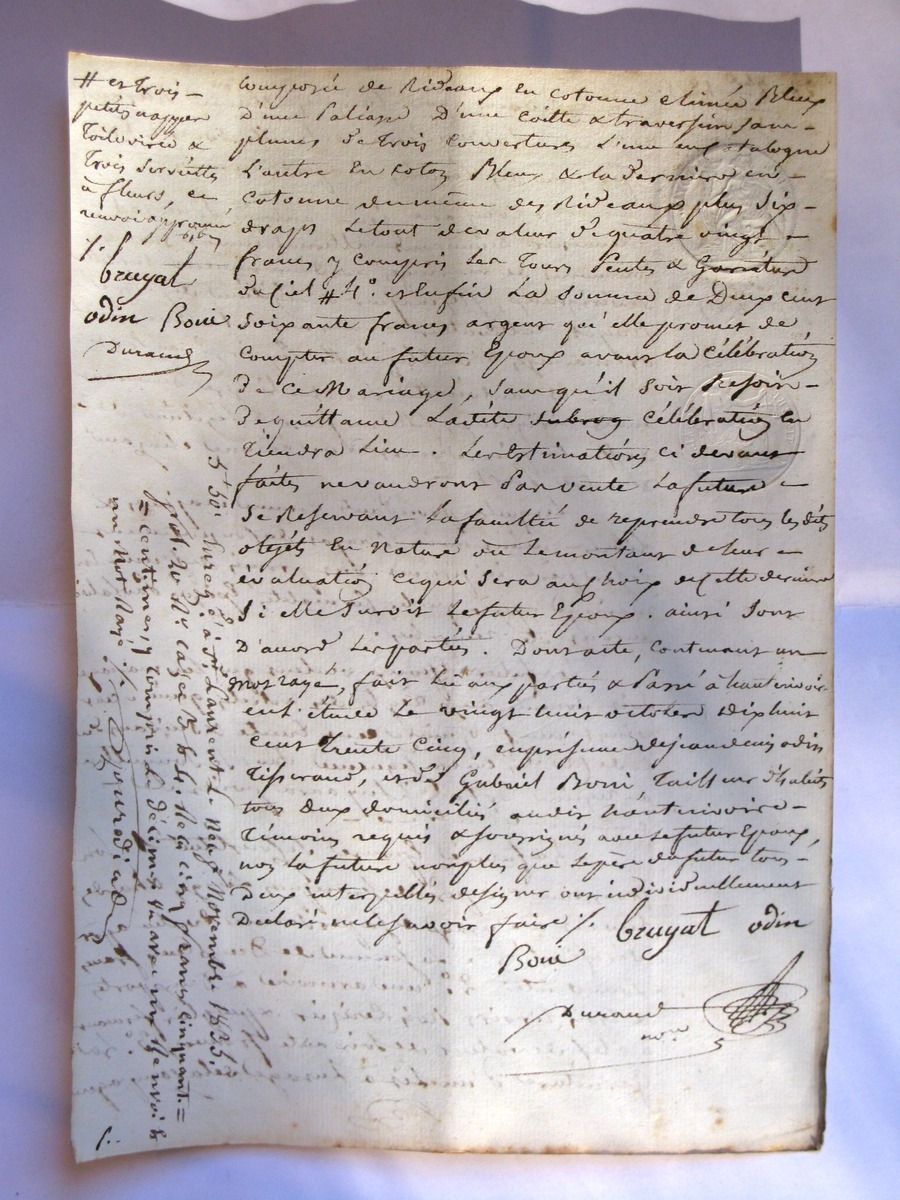 # et trois
petits nappes
toile virée &
trois serviettes
à fleurs, ce
renvoi approuvé
bruyat
odin Boné
Durand
composée de Rideaux en cotonne chinée Bleux
d'une Paliasse d'une Coitte & traversin sans
plumes de trois couvertures L'une en Catalogne
L'autre en coton Bleux & la derniere en
cotonne du même des Rideaux plus six
draps Le tout de valeur de quatre vingt
francs y compris Les Tours Pentes & Garniture
du Ciel # 4°. et Enfin La Somme de Deux cent
Soixante francs argent qu'elle promet de
Compter au futur Epoux avant la Célébration
de ce Mariage, sans qu'il soit Besoin
de quittance Ladite subrog Célébration en
Tiendra Lieu. Les Estimations ci devant
faites ne vaudront Pas vente La future
Se Reservant La faculté de reprendre tous les dits
objets En Nature ou Le montant de Leur
évaluation ce qui Sera au choix de cette derniere
Si elle Survit Le futur Epoux. ainsi sont
D'accord Les parties. Dont acte, contenant un
mot rayé, fait Lu aux parties & Passé à hauterivoire
en L'étude Le vingt huit octobre dix huit
cent trente Cinq, en présence de jean denis odin
Tisserand, et de Gabriel Boni, Tailleur d'habits
tous deux domiciliés audit hauterivoire
Témoins requis & soussignés avec Le futur Epoux,
non La future non plus que Le pere du futur tous
Deux interpellés de signer ont individuellement
Déclaré ne Le savoir faire ./. bruyat odin
Boné
Durand
nore
5 50c
Enregé à St. Laurent Le neuf Novembre 1835.
fol. 20 Ro. cazes 3 & 4. Reçu cinq francs cinquante
centimes y compris Le décime avec un Renvoi &
un Mot Rayé ./.